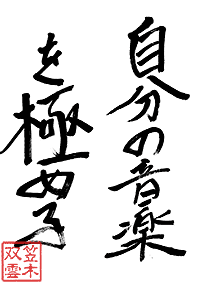 自分の音楽
を極める
笠木
双雲